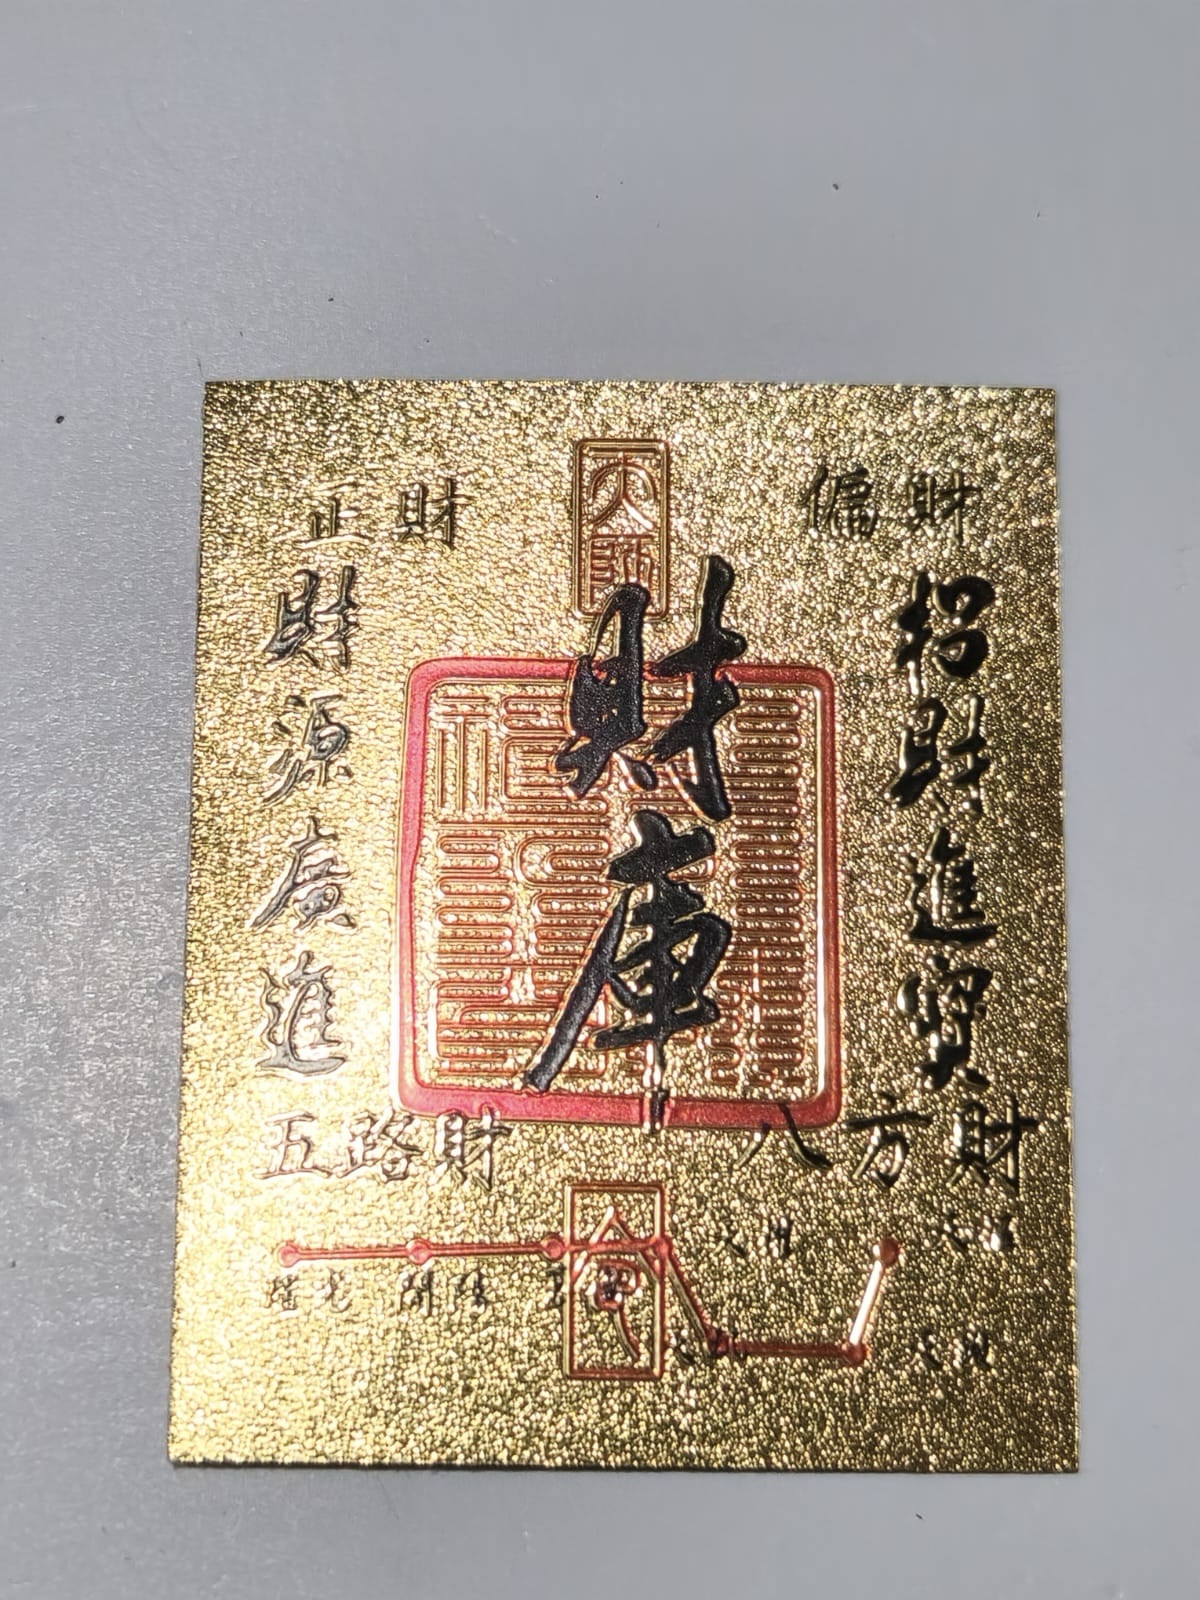 正財
偏財
天師
財庫
招財進寶
財源廣進
五路財
八方財
搖光 開陽 玉衡
天權
天樞
天璇
令